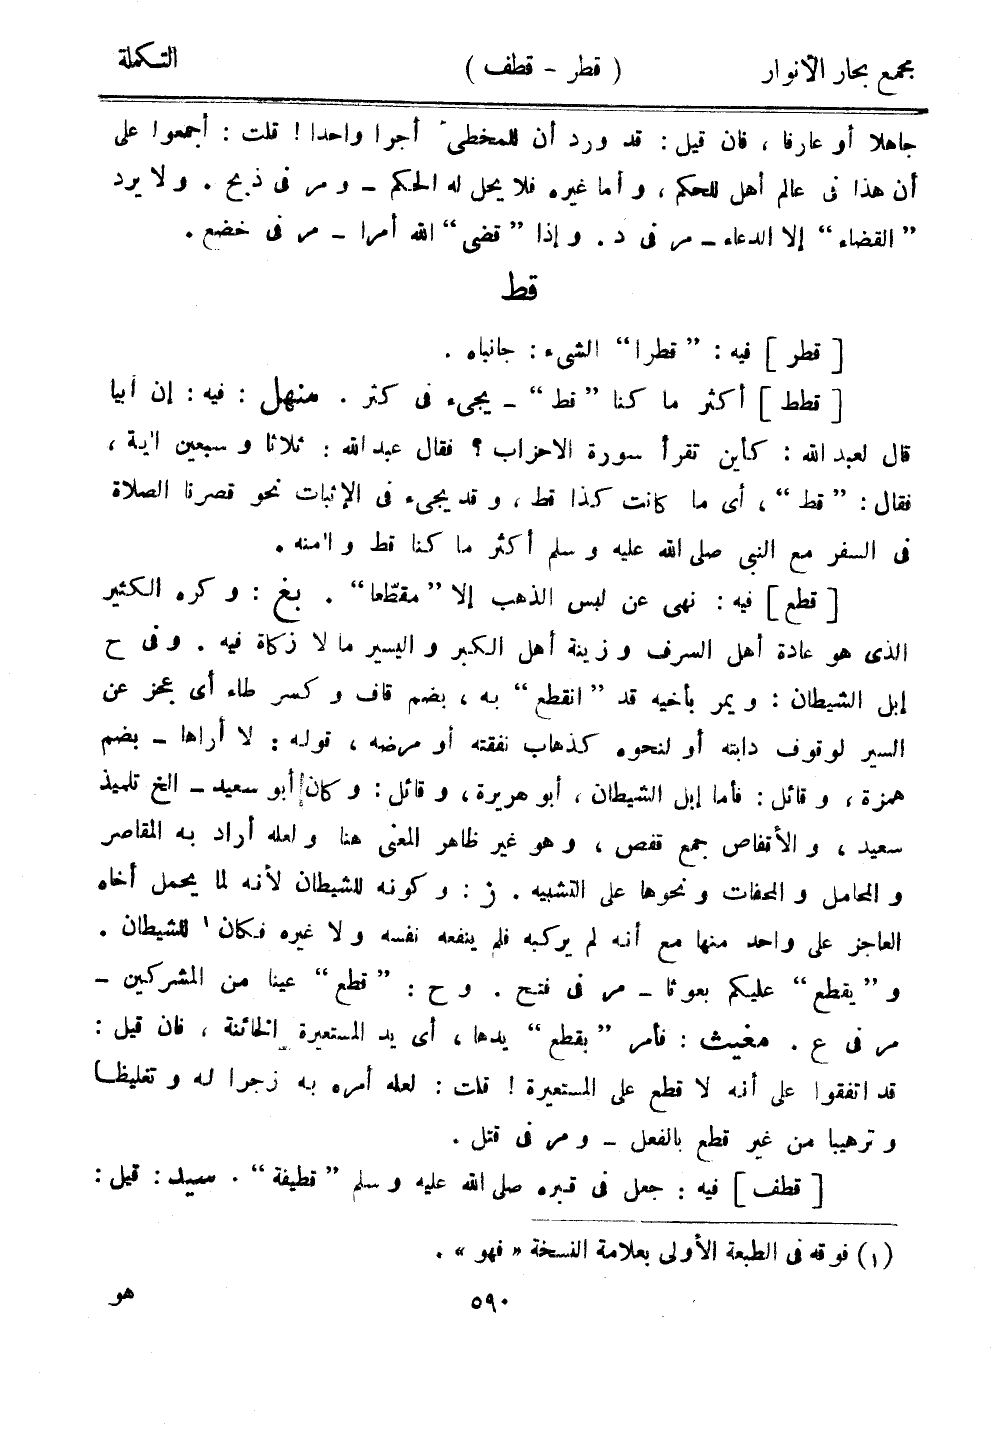 مجمع بحار الأنوار ( قطر - قطف ) التكملة
جاهلا أو عارفا ، فان قيل : قد ورد أن للمخطئ أجرا واحدا ! قلت : أجمعوا على
أن هذا فى عالم أهل للحكم ، و أما غيره فلا يحل له الحكم – و مر فى ذبح . و لا يرد
”القضاء“ إلا الدعاء – مر فى د . و إذا ”قضى“ الله أمرا – مر فى خضع .
قط
[ قطر ] فيه : ”قطرا“ الشىء : جانباه .
[ قطط ] أكثر ما كنا ”قط“ – يجىء فى كثر . منهل : فيه : إن أبيا
قال لعبد الله : كأين تقرأ سورة الاحزاب ؟ فقال عبد الله : ثلاثا و سبعين اٰية ،
فقال : ”قط“ ، أى ما كانت كذا قط ، و قد يجىء فى الإثبات نحو قصرنا الصلاة
فى السفر مع النبى صلى الله عليه و سلم أكثر ما كنا قط و اٰمنه .
[ قطع ] فيه : نهى عن لبس الذهب إلا ”مقطّعا“ . بغ : و كره الكثير
الذى هو عادة أهل السرف و زينة أهل الكبر و اليسير ما لا زكاة فيه . و فى ح
إبل الشيطان : و يمر بأخيه قد ”انقطع“ به ، بضم قاف و كسر طاء أى عجز عن
السير لوقوف دابته أو لنحوه كذهاب نفقته أو مرضه ، قوله : لا أراها – بضم
همزة ، و قائل : فأما إبل الشيطان ، أبو هريرة ، و قائل : و كان أبو سعيد – الخ تلميذ
سعيد ، و الأقفاص جمع قفص ، و هو غير ظاهر المعنى هنا و لعله أراد به المقاصر
و المحامل و المحفات و نحوها على التشبيه . ز : و كونه للشيطان لأنه لما يحمل أخاه
العاجز على واحد منها مع أنه لم يركبه فلم ينفعه نفسه و لا غيره فكان ١ للشيطان .
و ”يقطع“ عليكم بعوثا – مر فى فتح . و ح : ”قطع“ عينا من المشركين –
مر فى ع . مغيث : فأمر ”بقطع“ يدها ، أى يد المستعيرة الخائنة ، فان قيل :
قد اتفقوا على أنه لا قطع على المستعيرة ! قلت : لعله أمره به زجرا له و تغليظا
و ترهيبا من غير قطع بالفعل – و مر فى قتل .
[ قطف ] فيه : جعل فى قبره صلى الله عليه و سلم ”قطيفة“ . سيد : قيل :
(١) فوقه فى الطبعة الأولى بعلامة النسخة « فهو » .
٥٩٠ هو